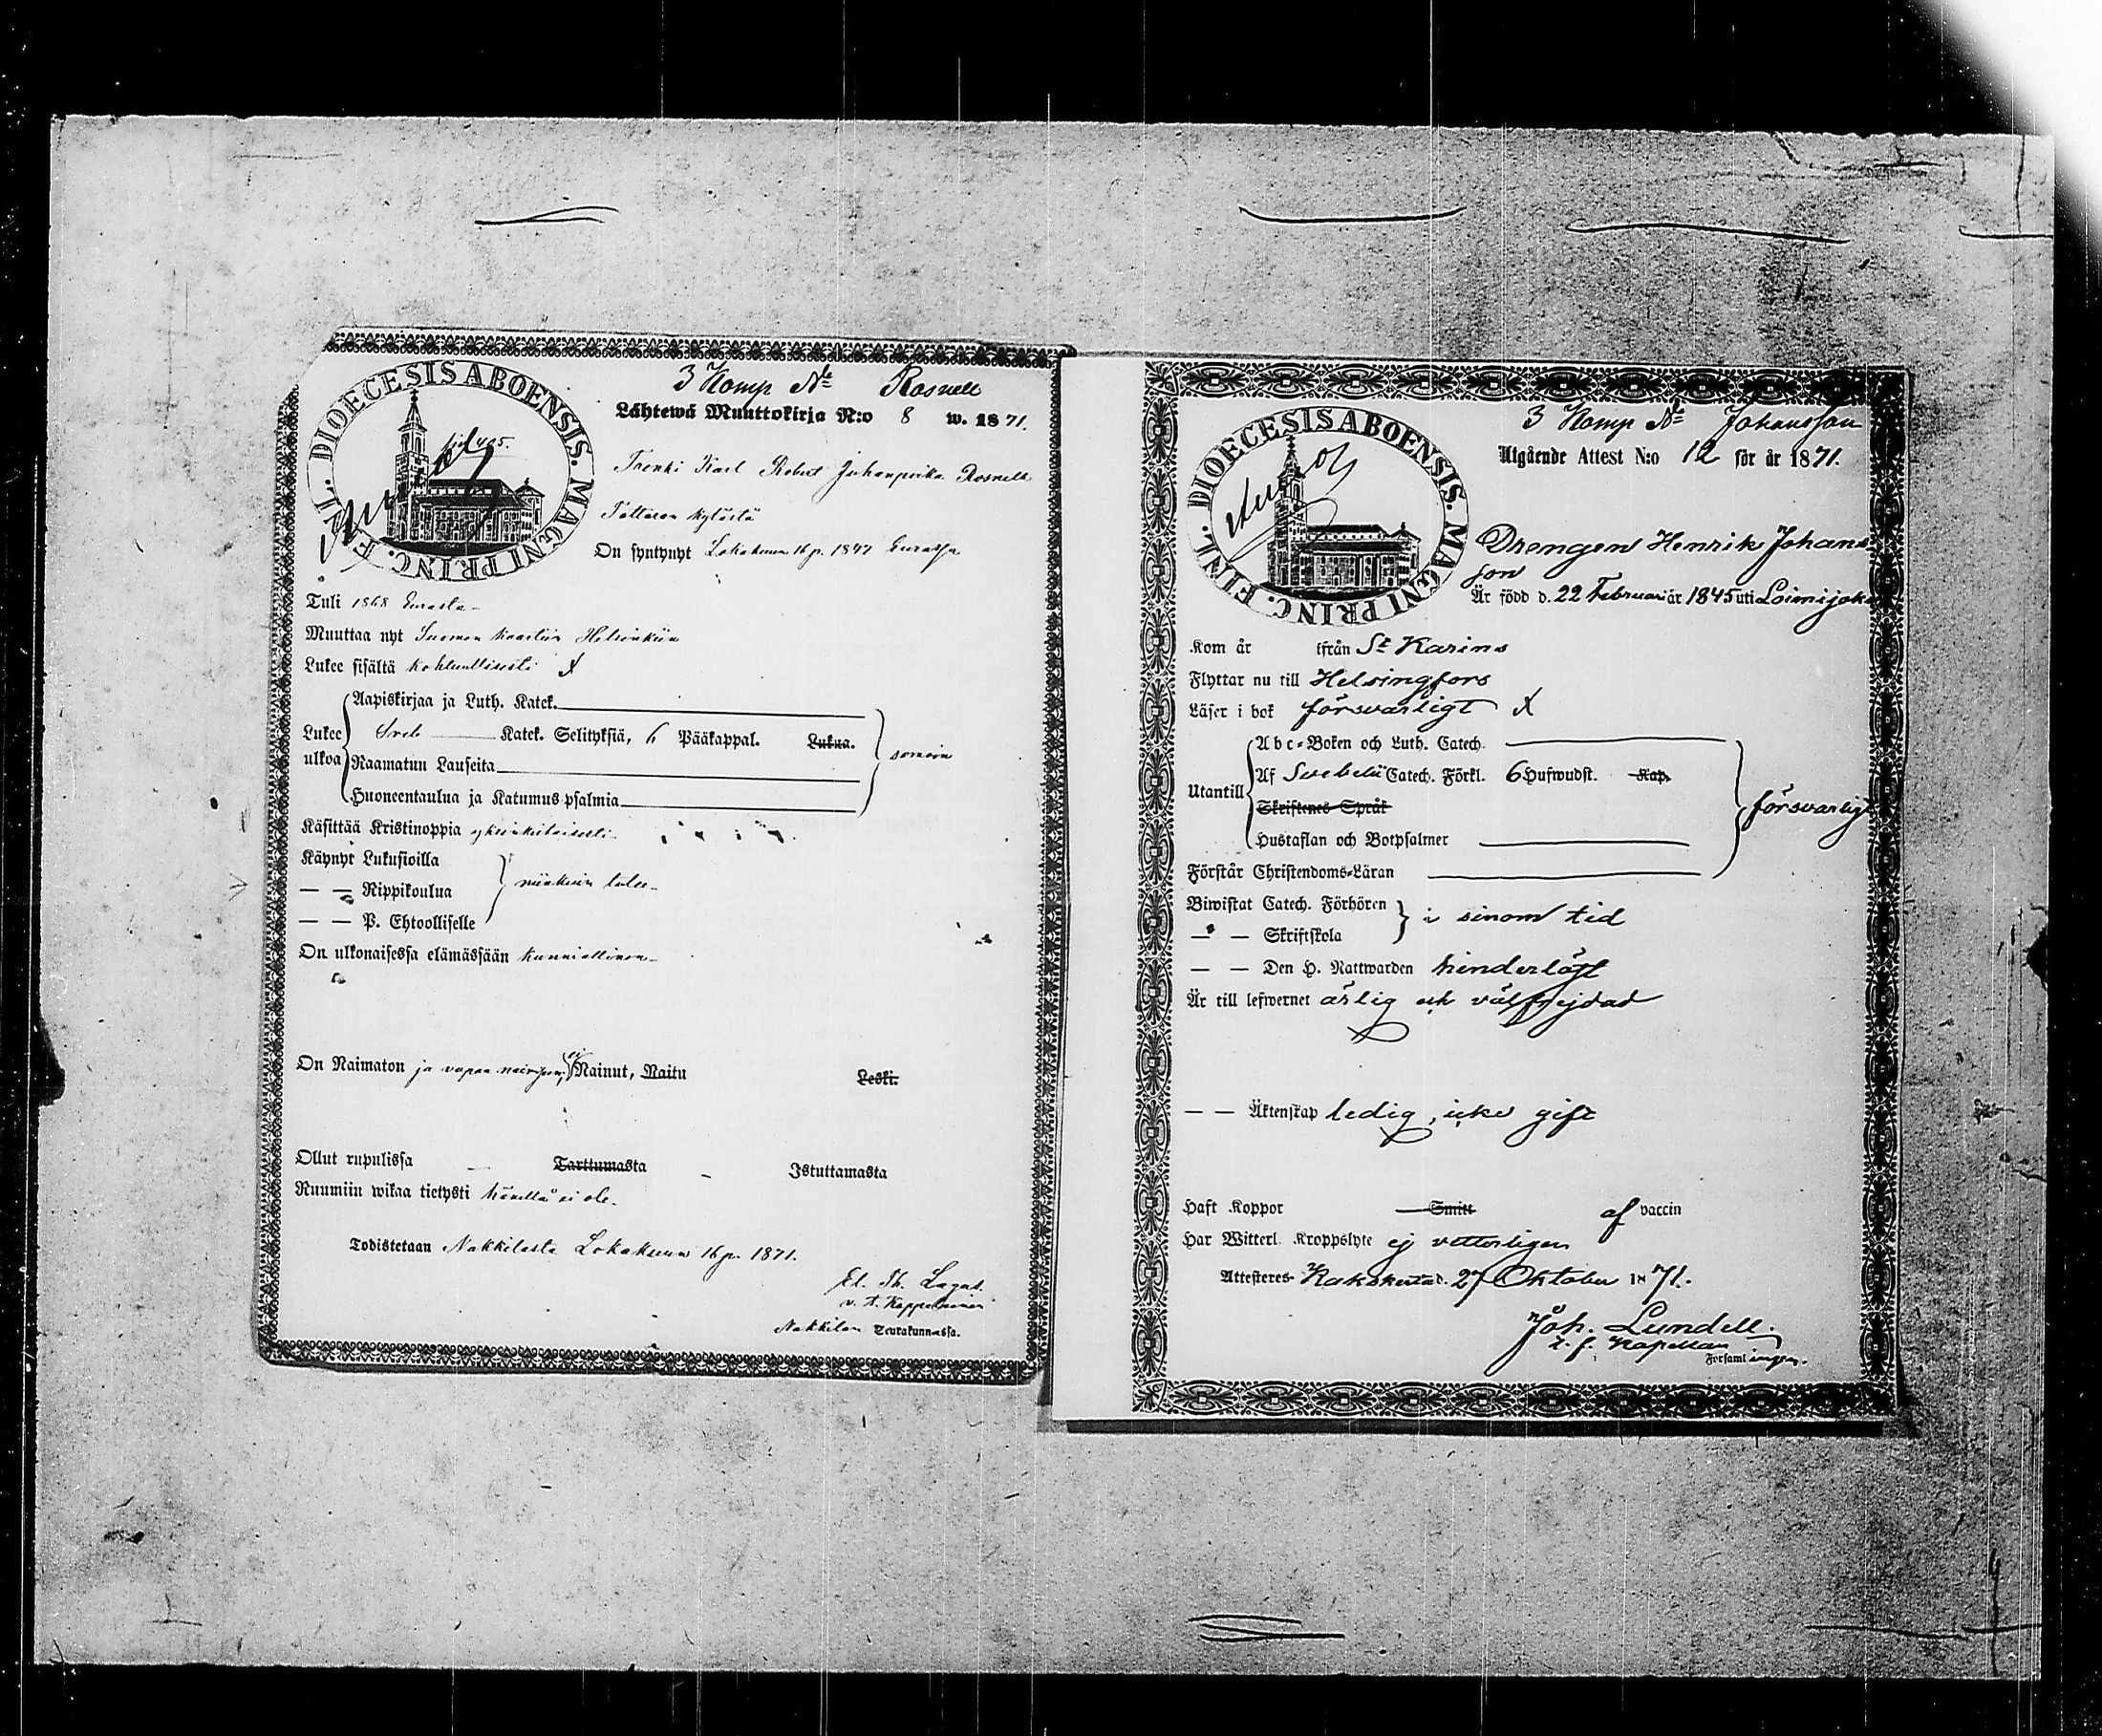 3 Komp Nº Rosnell
DIOECESIS ABOENSIS. MAGNI PRINC. FINL.
Lähtewä Muuttokirja N:o 8 w. 1871.
Trenki Karl Robert Juhanpoika Rosnell
Tattaran kylästä
On syntynyt Lokakuun 16 p. 1847 Eurassa
Tuli 1868 Eurasta
Muuttaa nyt Suomen kaartiin Helsinkiin
Lukee sisältä kohtuullisesti
Aapiskirjaa ja Luth. Katek.
Lukee ulkoa Sveb Katek. Selityksiä, 6 Pääkappal. Lukua.
Raamatun Lauseita
Huoneentaulua ja Katumuspsalmia
somoin
Käsittää Kristinoppia yksinkertaisesti
Käynyt Lukusioilla
— — Rippikoulua niinkuin tulee
— — P. Ehtoolliselle
On ulkonaisessa elämässään kunniallinen
On Naimaton ja vapaa naimaan, ei Nainut, Naitu Leski.
Ollut rupulissa — Tarttumasta — Istuttamasta
Ruumiin wikaa tietysti hänellä ei ole.
Todistetaan Nakkilasta Lokakuun 16 p. 1871.
El. Th. Lagus.
v. t. Kappalainen
Nakkilan Seurakunnassa.
3 Komp Nº Johansson
DIOECESIS ABOENSIS. MAGNI PRINC. FINL.
Utgående Attest N:o 12 för år 1871.
Drengen Henrik Johans
son
Är född d. 22 Februari år 1845 uti Loimijoki
Kom år ifrån St Karins
Flyttar nu till Helsingfors
Läser i bok försvarligt
Abc-Boken och Luth. Catech.
Utantill Af Svebelii Catech. Förkl. 6 Hufwudst. Kap.
Skriftenes Språk
försvarligt
Hustaflan och Botpsalmer
Förstår Christendoms-Läran
Biwistat Catech. Förhören
i sinom tid
— — Skriftskola
— — Den H. Nattwarden hinderlöst
Är till lefwernet ärlig och välfrejdad
— — Äktenskap ledig, icke gift
Haft Koppor Smitt af vaccin
Har Witterl. Kroppslyte ej vetterligen
Attesteres Kakskerta d. 27 Oktober 1871.
Joh. Lundell.
t. f. Kapellan
Församlingen.